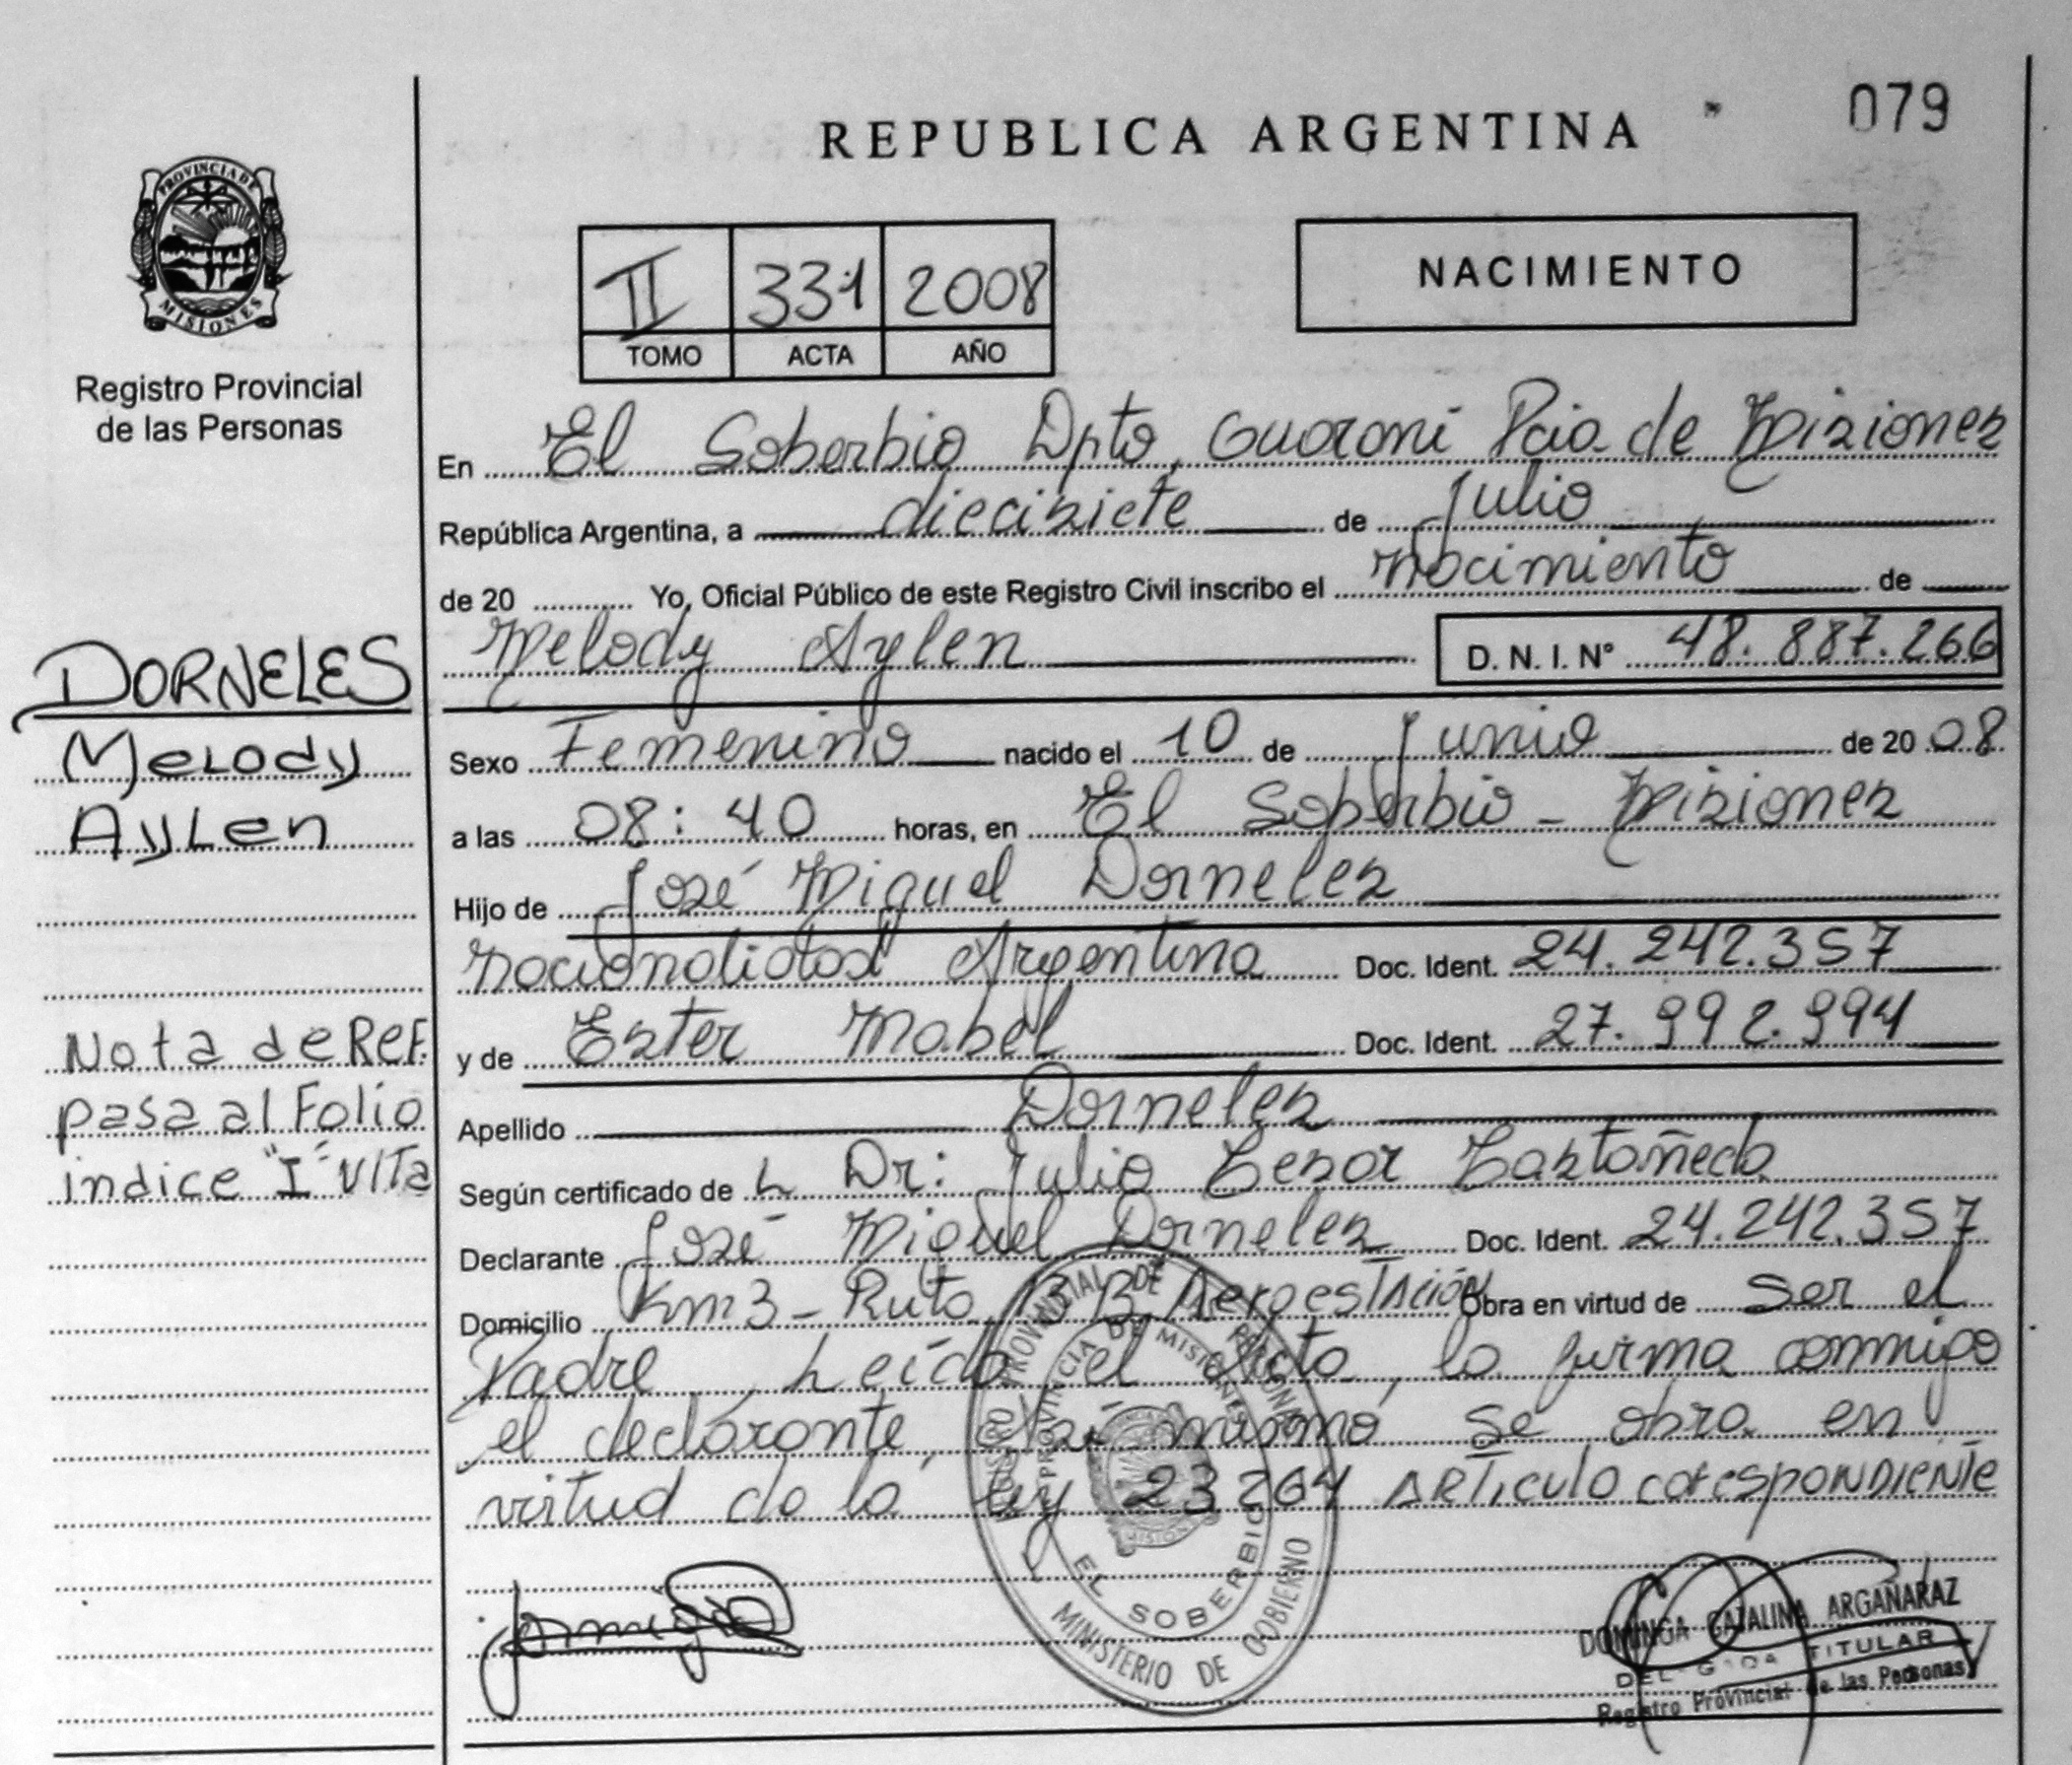 REPUBLICA ARGENTINA
079
PROVINCIA DE
MISIONES
Registro Provincial
de las Personas
II 331 2008
TOMO ACTA AÑO
NACIMIENTO
En El Soberbio Dpto, Guaraní Pcia de Misiones
República Argentina, a diecisiete de Julio
de 20 Yo, Oficial Público de este Registro Civil inscribo el nacimiento de
Melody Aylen D. N. I. Nº 48.887.266
DORNELES
Melody
Aylen
Sexo Femenino nacido el 10 de Junio de 20 08
a las 08:40 horas, en El Soberbio - Misiones
Hijo de José Miguel Dorneles
nacionalidad Argentina Doc. Ident. 24.242.357
y de Ester Mabel Doc. Ident. 27.992.994
Nota de Ref.
pasa al Folio
indice "I" Vlta
Apellido Dorneles
Según certificado de L Dr: Julio Cesar Castañeda
Declarante José Miguel Dorneles Doc. Ident. 24.242.357
Domicilio Km3 - Ruta 13 Bº Aeroestación Obra en virtud de Ser el
Padre, Leída el Acta, la firma conmigo
el declarante, Asi mismo se obra en
virtud de la Ley 23264 ARTiculo corespondiente
REGISTRO PROVINCIAL DE LAS PERSONAS
PROVINCIA DE MISIONES
MISIONES
EL SOBERBIO
MINISTERIO DE GOBIERNO
DOMINGA CATALINA ARGAÑARAZ
DELEGADA TITULAR
Registro Provincial de las Personas